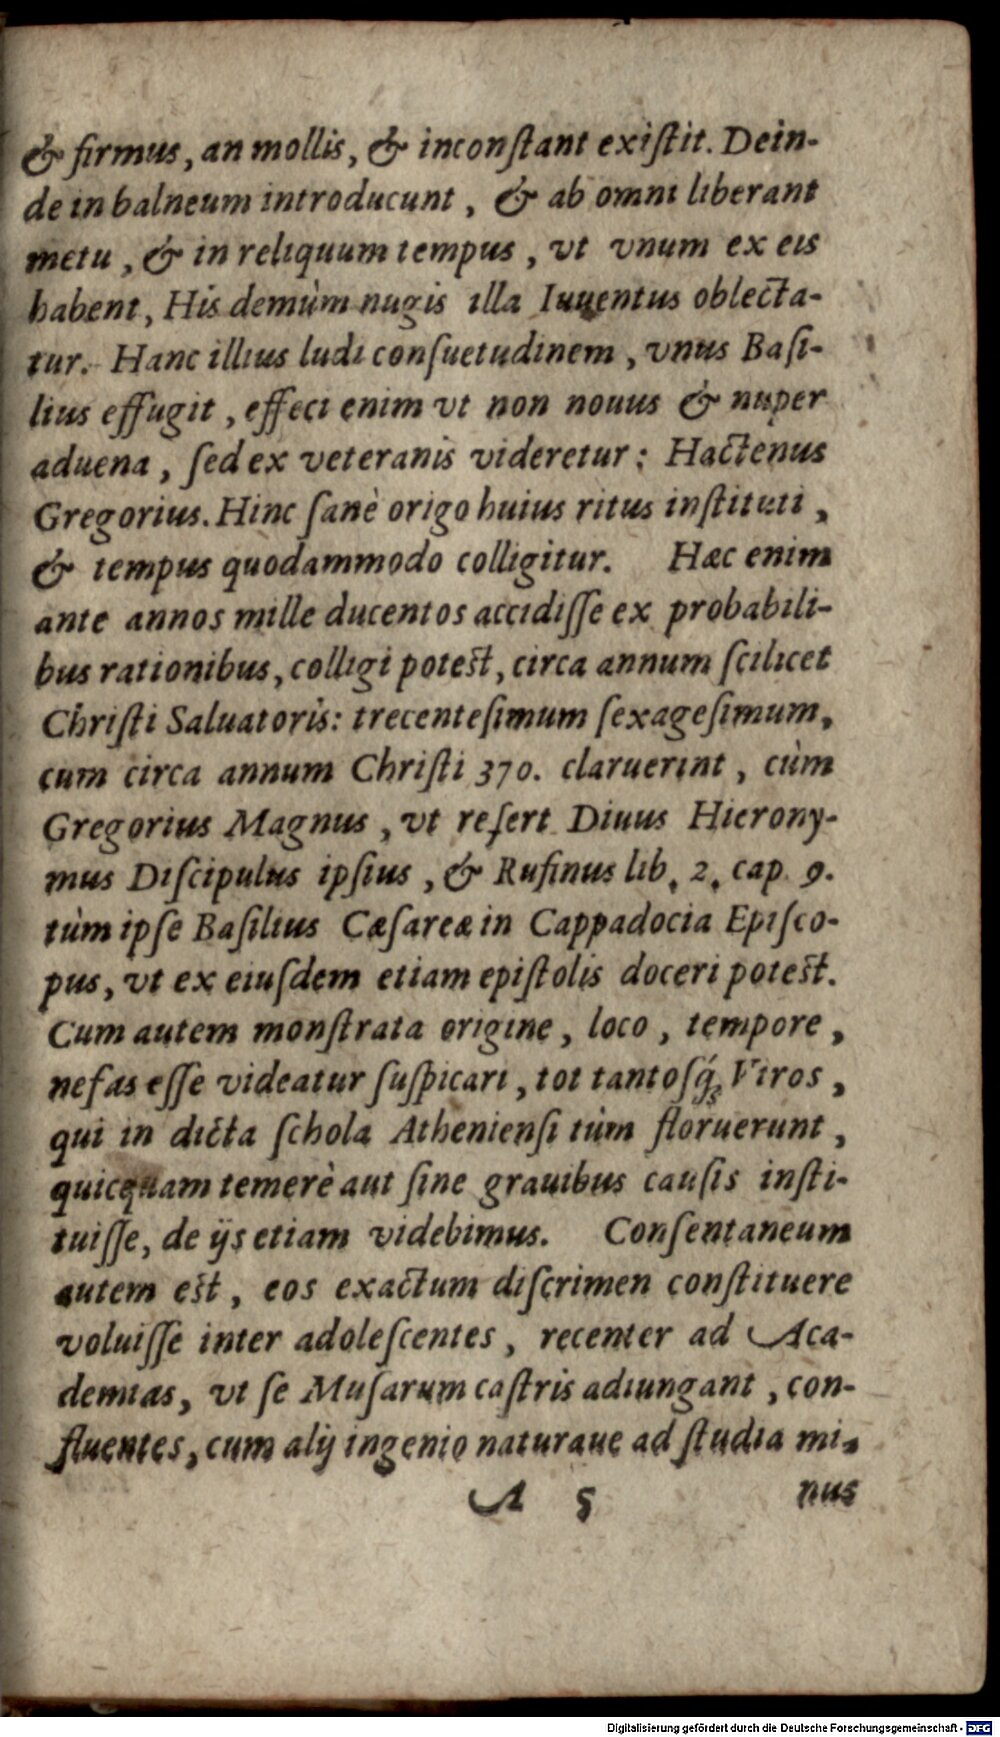 & firmus, an mollis, & inconſtant exiſtit. Dein-
de in balneum introducunt, & ab omni liberant
metu, & in reliquum tempus, vt vnum ex eis
habent, His demùm nugis illa Iuuentus oblecta-
tur. Hanc illius ludi conſuetudinem, vnus Baſi-
lius effugit, effeci enim vt non nouus & nuper
aduena, ſed ex veteranis videretur: Hactenus
Gregorius. Hinc ſanè origo huius ritus inſtituti,
& tempus quodammodo colligitur. Hæc enim
ante annos mille ducentos accidiſſe ex probabili-
bus rationibus, colligi poteſt, circa annum ſcilicet
Chriſti Saluatoris: trecenteſimum ſexageſimum,
cum circa annum Chriſti 370. claruerint, cùm
Gregorius Magnus, vt refert Diuus Hierony-
mus Diſcipulus ipſius, & Rufinus lib. 2. cap. 9.
tùm ipſe Baſilius Cæſareæ in Cappadocia Epiſco-
pus, vt ex eiuſdem etiam epiſtolis doceri poteſt.
Cum autem monſtrata origine, loco, tempore,
nefas eſſe videatur ſuſpicari, tot tantoſq́; Viros,
qui in dicta ſchola Athenienſi tùm floruerunt,
quicquam temerè aut ſine grauibus cauſis inſti-
tuiſſe, de ijs etiam videbimus. Conſentaneum
autem eſt, eos exactum diſcrimen conſtituere
voluiſſe inter adoleſcentes, recenter ad Aca-
demias, vt ſe Muſarum caſtris adiungant, con-
fluentes, cum alij ingenio naturaue ad ſtudia mi-
A 5 nus
Digitalisierung gefördert durch die Deutsche Forschungsgemeinschaft - DFG